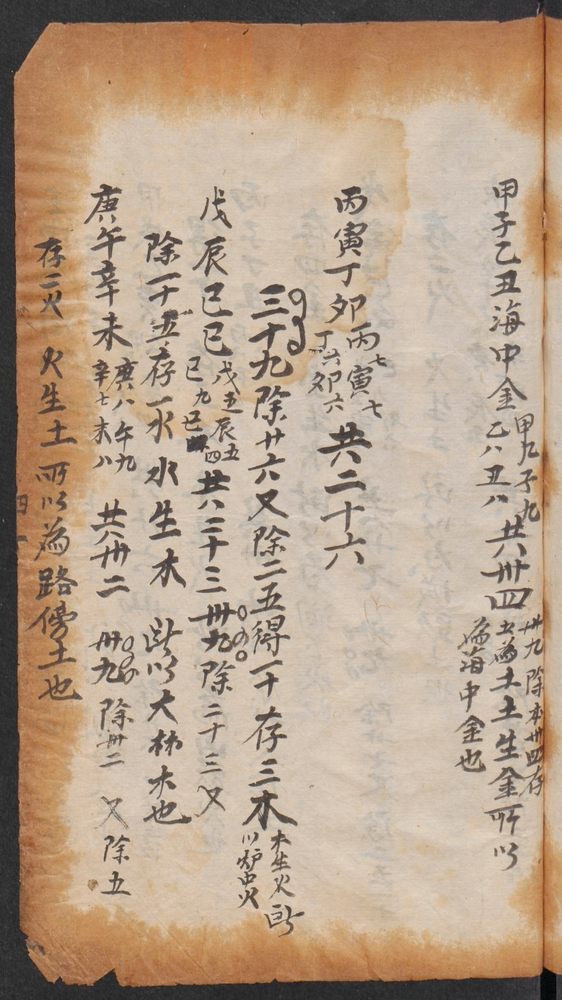 甲子乙丑海中金 甲九子九 乙八丑八 共卅四 卅九除本卅四存 五為土土生金所以 為海中金也
丙寅丁夘 丙七寅七 丁六夘六 共二十六
三十九除廿六又除二五得一十存三木 木生火所 以炉中火
戊辰巳巳 戊五辰五 巳九巳四 共二十三 卅九除二十三又
除一十五存一水水生木 所以大林木也
庚午辛未 庚八午九 辛七未八 共卅二 卅九除卅二又除五
存二火 火生土所以為路傍土也